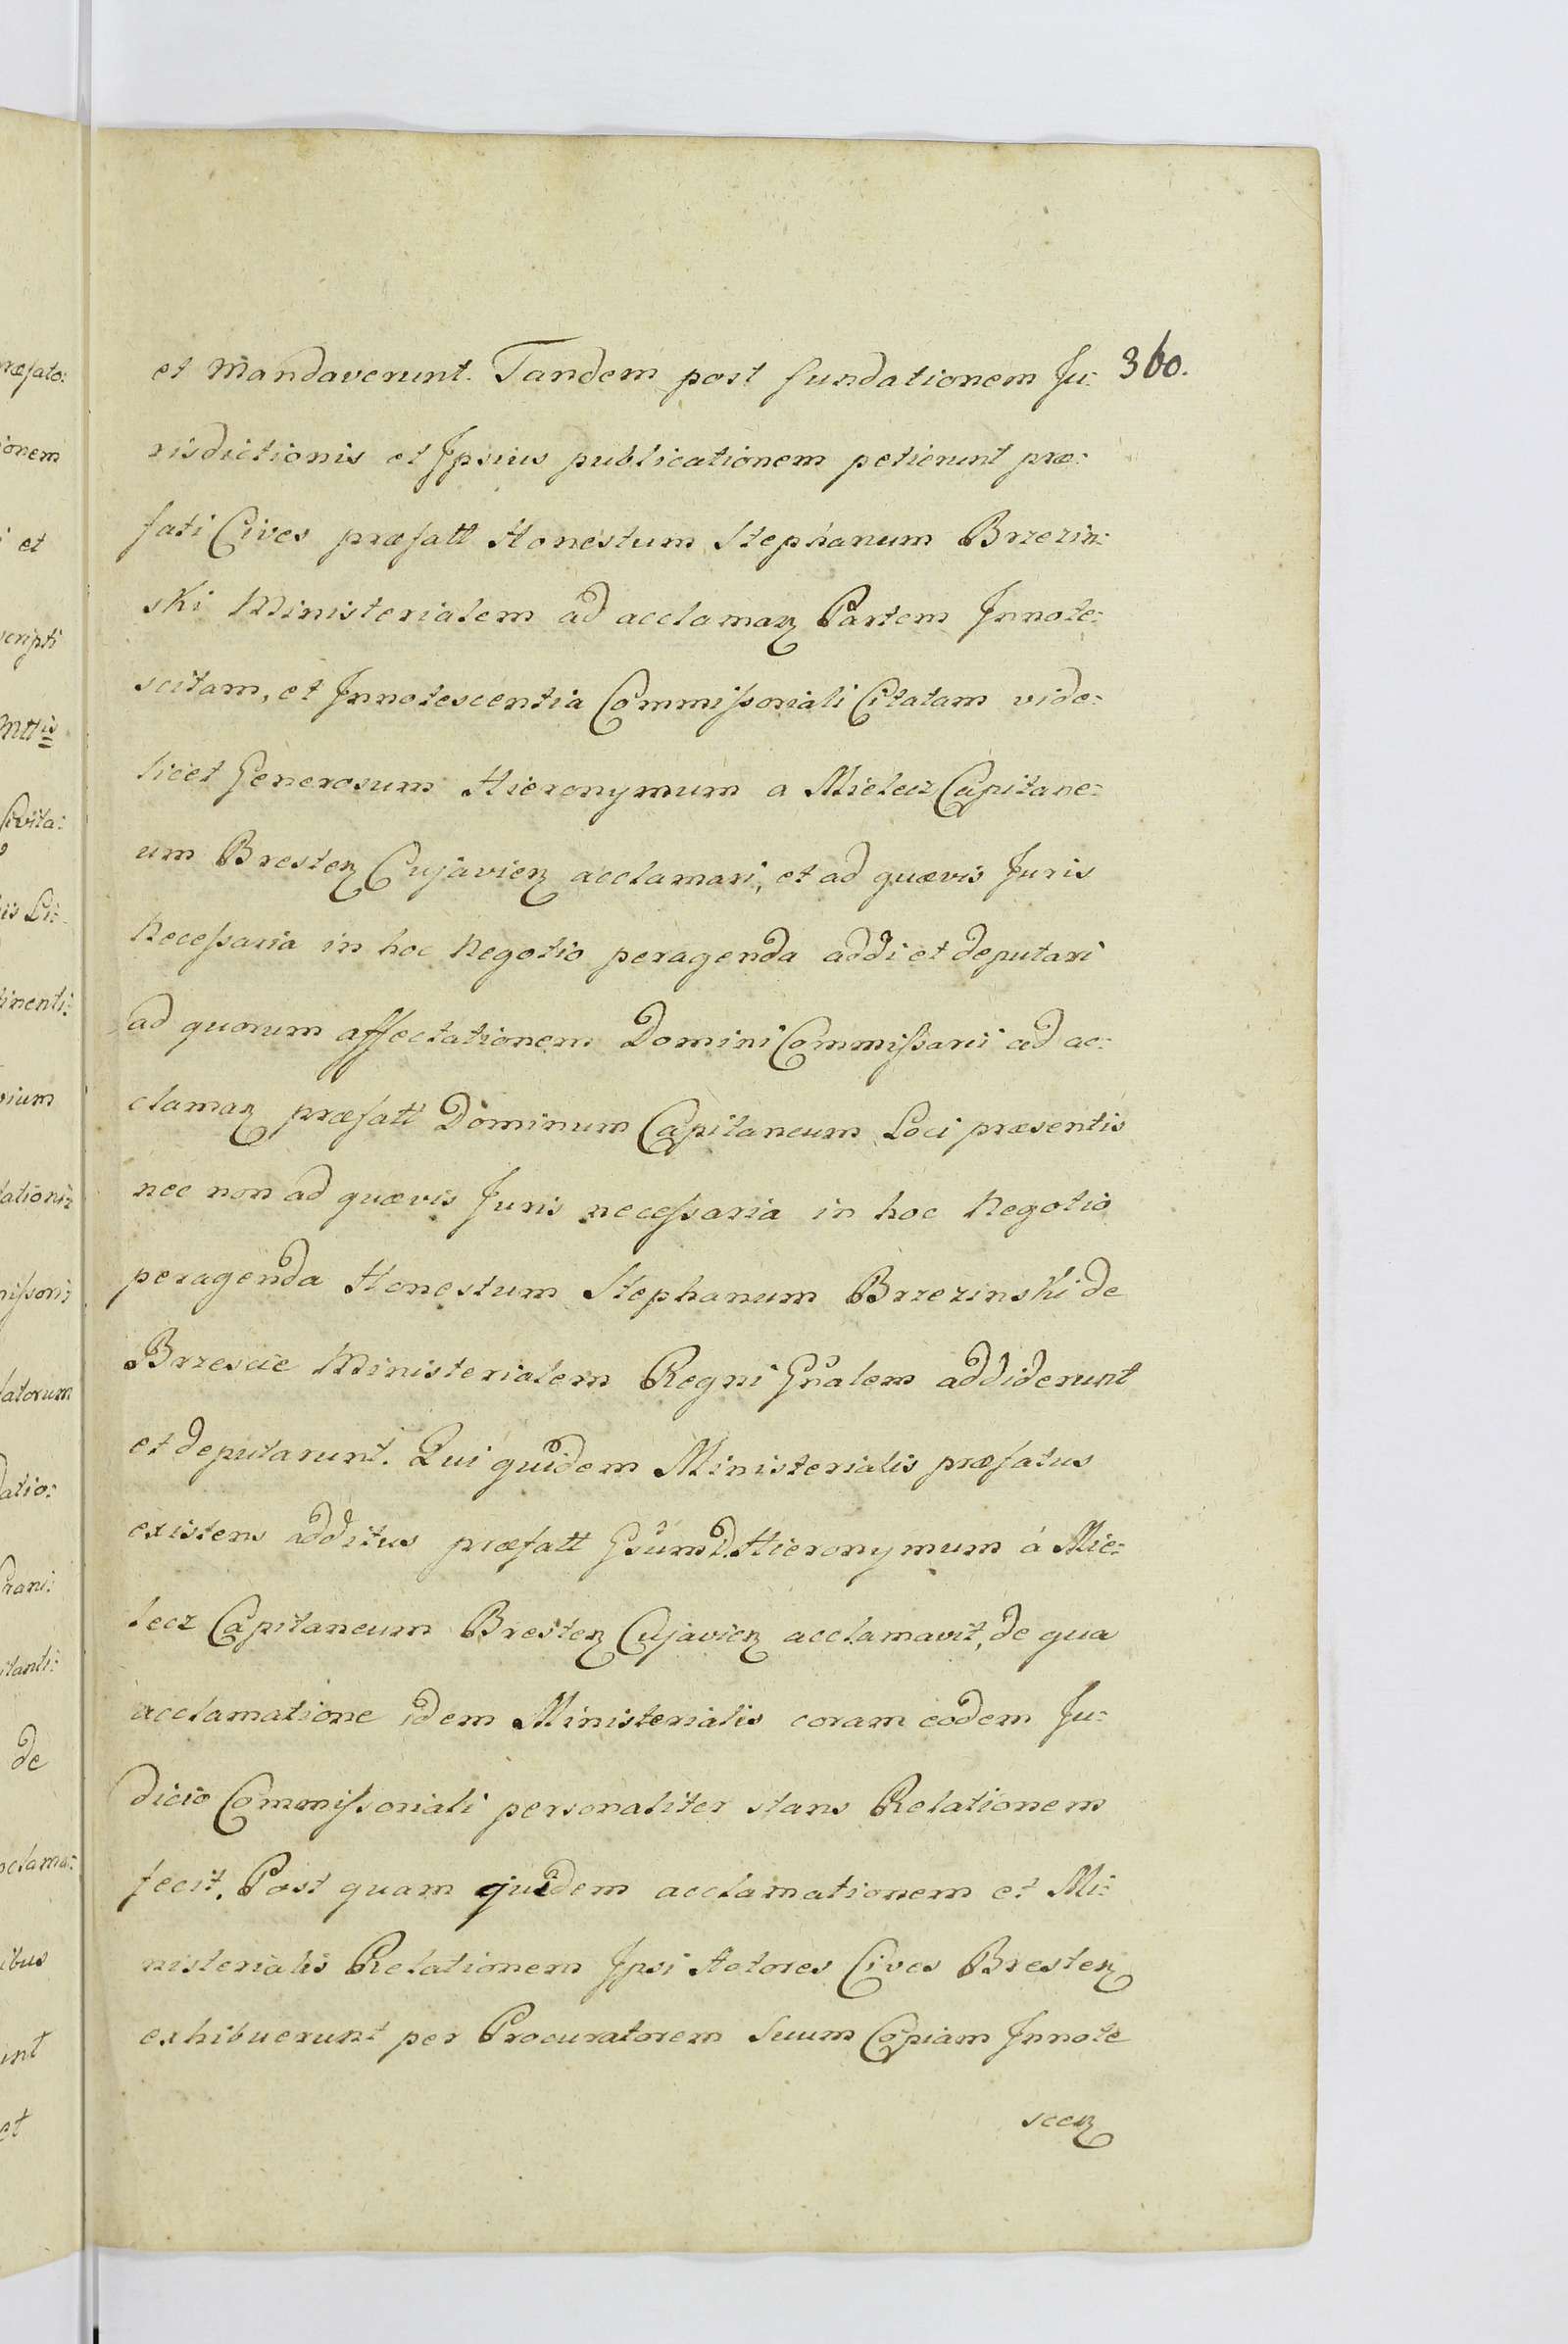 360.
et Mandaverunt. Tandem post fundationem Ju:
risdictionis et Ipsius publicationem petierunt præ:
fati Cives præfatt Honestum Stephanum Brzezin:
ski Ministerialem ad acclamaꝫ Partem Innote:
scitam, et Innotescentia Commissoriali Citatam vide:
licet Generosum Hieronymum a Mielecz Capitane:
um Bresteꝫ Cujavieꝫ acclamari, et ad quævis Juris
Necessaria in hoc Negotio peragenda addi et deputari
ad quorum affectationem Domini Commissarii ad ac:
clamaꝫ præfatt Dominum Capitaneum Loci præsentis
nec non ad quævis Juris necessaria in hoc Negotio
peragenda Honestum Stephanum Brzezinski de
Brzescie Ministerialem Regni Gnalem addiderunt
et deputarunt. Qui quidem Ministerialis præfatus
existens additus præfatt Gsum D. Hieronymum á Mie:
lecz Capitaneum Bresteꝫ Cujavieꝫ acclamavit, de qua
acclamatione idem Ministerialis coram eodem Ju:
dicio Commissoriali personaliter stans Relationem
fecit. Post quam quidem acclamationem et Mi:
nisterialis Relationem Ipsi Actores Cives Bresteꝫ
exhibuerunt per Procuratorem Suum Copiam Innote
sceꝫ